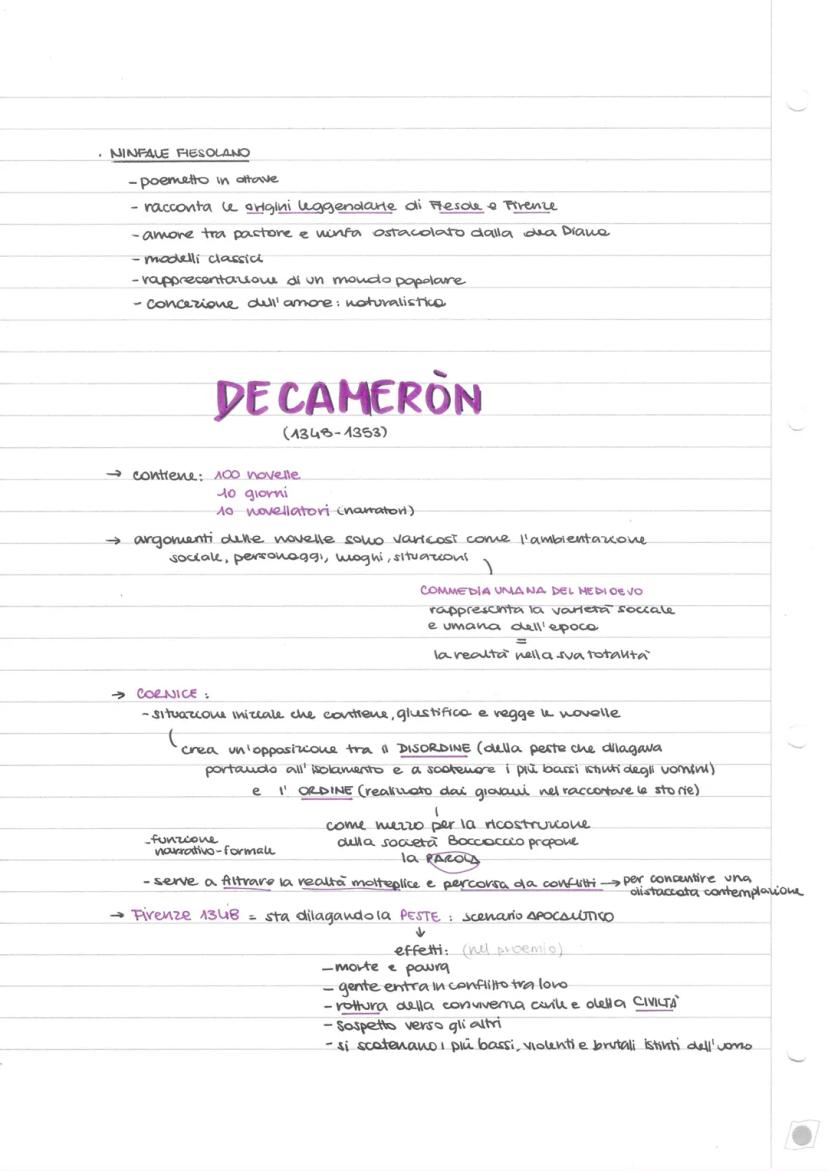 . NINFALE FIESOLANO
- poemetto in ottave
- racconta le origini leggendarie di Fiesole e Firenze
- amore tra pastore e ninfa ostacolato dalla dea Diana
- modelli classici
- rappresentazione di un mondo popolare
- concezione dell'amore: naturalistica
DECAMERÒN
(1348-1353)
→ contiene: 100 novelle
10 giorni
10 novellatori (narratori)
→ argomenti delle novelle sono varicosì come l'ambientazione
sociale, personaggi, luoghi, situazioni
COMMEDIA UMANA DEL MEDIOEVO
rappresenta la varietà sociale
e umana dell'epoca
=
la realtà nella sua totalità
→ CORNICE :
- situazione iniziale che contiene, giustifica e regge le novelle
crea un'opposizione tra il DISORDINE (della peste che dilagava
portando all'isolamento e a scatenare i più bassi istinti degli uomini)
e l'ORDINE (realizzato dai giovani nel raccontare le storie)
come mezzo per la ricostruzione
della società Boccaccio propone
la PAROLA
- funzione
narrativo-formale
- serve a filtrare la realtà molteplice e percorsa da conflitti → per consentire una
distaccata contemplazione
→ Firenze 1348 = sta dilagando la PESTE : scenario APOCALITTICO
↓
effetti: (nel proemio)
- morte e paura
- gente entra in conflitto tra loro
- rottura della convivenza civile e della CIVILTÀ
- sospetto verso gli altri
- si scatenano i più bassi, violenti e brutali istinti dell'uomo